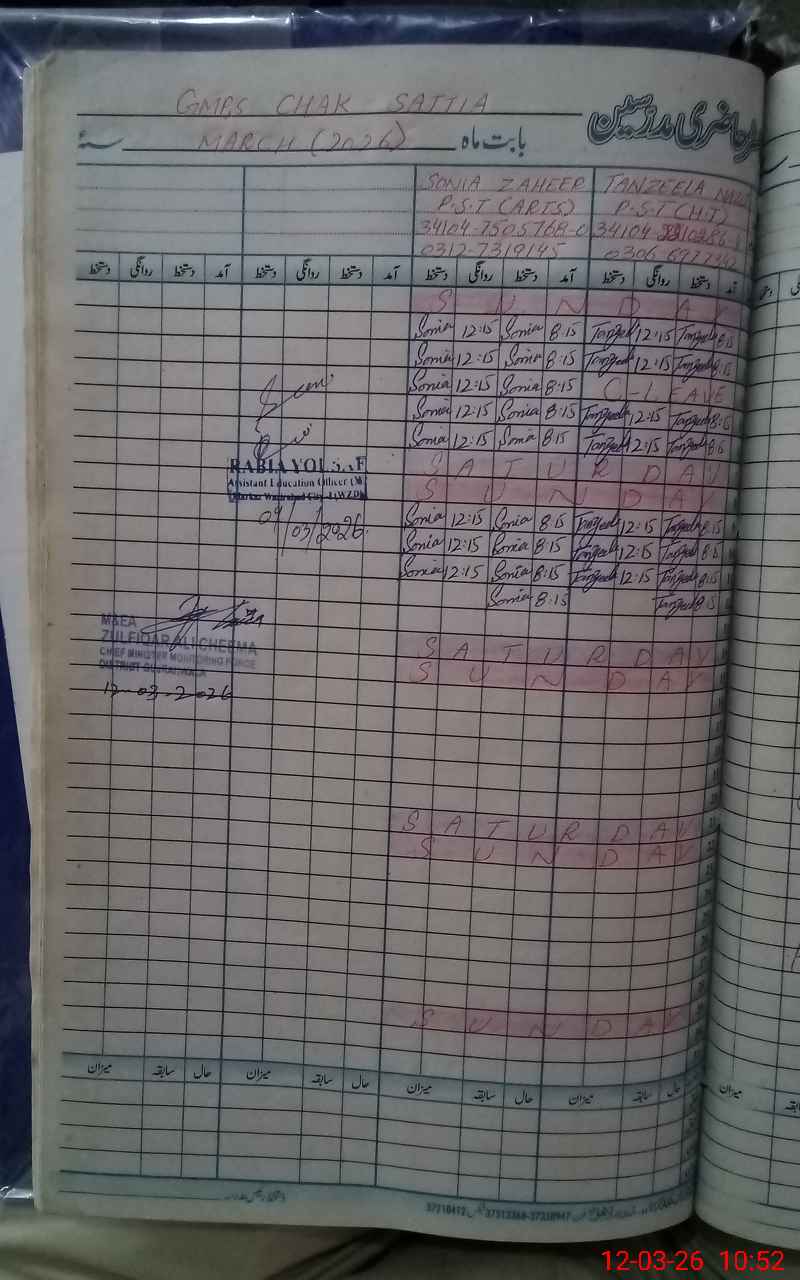 GMPS CHAK SATTIA
حاضری مدرسین
MARCH (2026) بابت ماہ
SONIA ZAHEER TANZEELA
P.S.T (ARTS) P.S.T (H.T)
34104-7505768-0 34104
0312-7319145
دستخط روانگی دستخط آمد دستخط روانگی دستخط آمد دستخط روانگی دستخط آمد دستخط روانگی دستخط آمد
S U N D A Y
Sonia 12:15 Sonia 8:15 Tanzeela 12:15 Tanzeela 8:15
Sonia 12:15 Sonia 8:15 Tanzeela 12:15 Tanzeela 8:15
Sonia 12:15 Sonia 8:15 C-LEAVE
Sonia 12:15 Sonia 8:15 Tanzeela 12:15 Tanzeela 8:15
Sonia 12:15 Sonia 8:15 Tanzeela 12:15 Tanzeela 8:15
S A T U R D A Y
Assistant Education Officer
S U N D A Y
Sonia 12:15 Sonia 8:15 Tanzeela 12:15 Tanzeela 8:15
09/03/2026
Sonia 12:15 Sonia 8:15 Tanzeela 12:15 Tanzeela 8:15
Sonia 12:15 Sonia 8:15 Tanzeela 12:15 Tanzeela 8:15
Sonia 8:15 Tanzeela 8:15
M&EA
ZULFIQAR ALI CHEEMA
CHIEF MINISTER MONITORING FORCE
DISTRICT GUJRANWALA
12-03-2026
S A T U R D A Y
S U N D A Y
S A T U R D A Y
S U N D A Y
S U N D A Y
میزان سابقہ حال میزان سابقہ حال میزان سابقہ حال میزان سابقہ حال
12-03-26 10:52